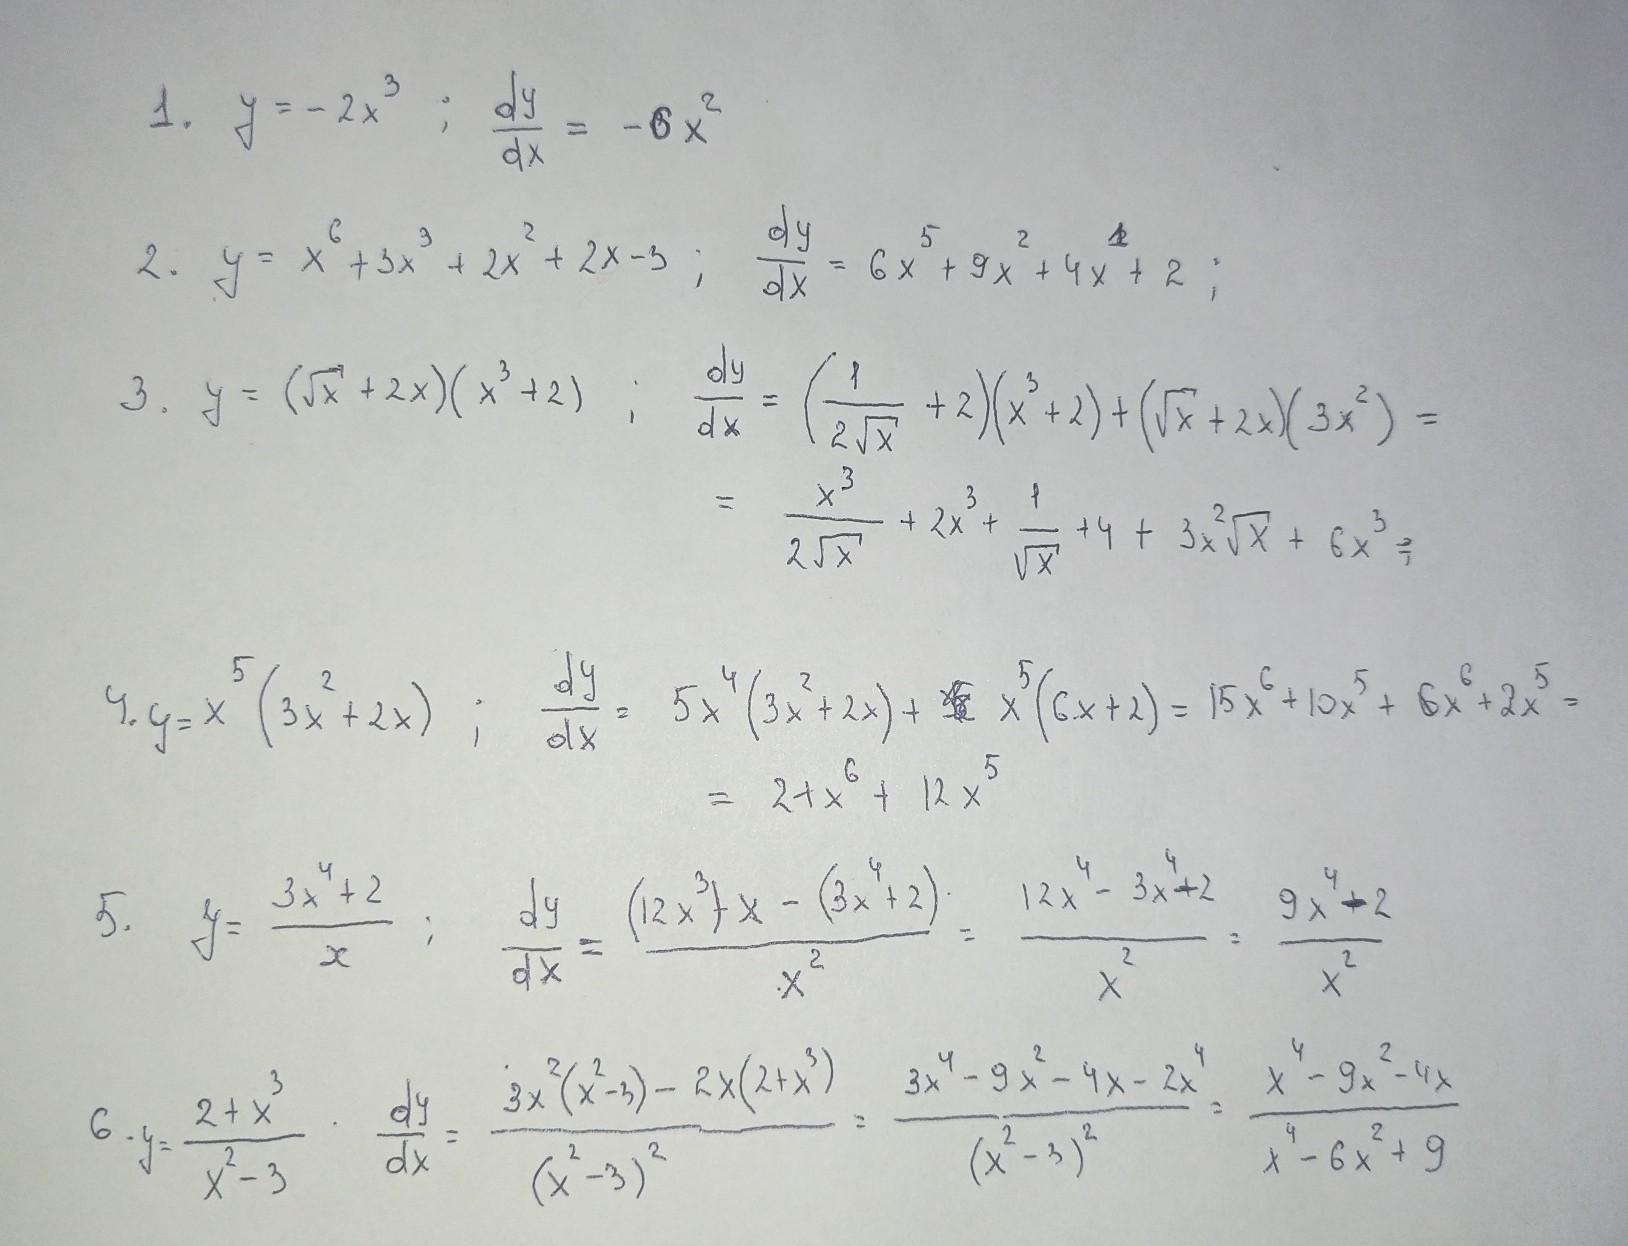 1. y = -2x³ ; dy/dx = -6x²
2. y = x⁶ + 3x³ + 2x² + 2x - 3 ; dy/dx = 6x⁵ + 9x² + 4x¹ + 2 ;
3. y = (√x + 2x)(x³ + 2) ; dy/dx = (1/(2√x) + 2)(x³ + 2) + (√x + 2x)(3x²) =
= x³/(2√x) + 2x³ + 1/√x + 4 + 3x²√x + 6x³ ;
4. y = x⁵(3x² + 2x) ; dy/dx = 5x⁴(3x² + 2x) + x⁵(6x + 2) = 15x⁶ + 10x⁵ + 6x⁶ + 2x⁵ =
= 21x⁶ + 12x⁵
5. y = (3x⁴ + 2)/x ; dy/dx = ((12x³)·x - (3x⁴ + 2))/x² = (12x⁴ - 3x⁴ - 2)/x² = (9x⁴ - 2)/x²
6. y = (2 + x³)/(x² - 3) . dy/dx = (3x²(x² - 3) - 2x(2 + x³))/(x² - 3)² = (3x⁴ - 9x² - 4x - 2x⁴)/(x² - 3)² = (x⁴ - 9x² - 4x)/(x⁴ - 6x² + 9)